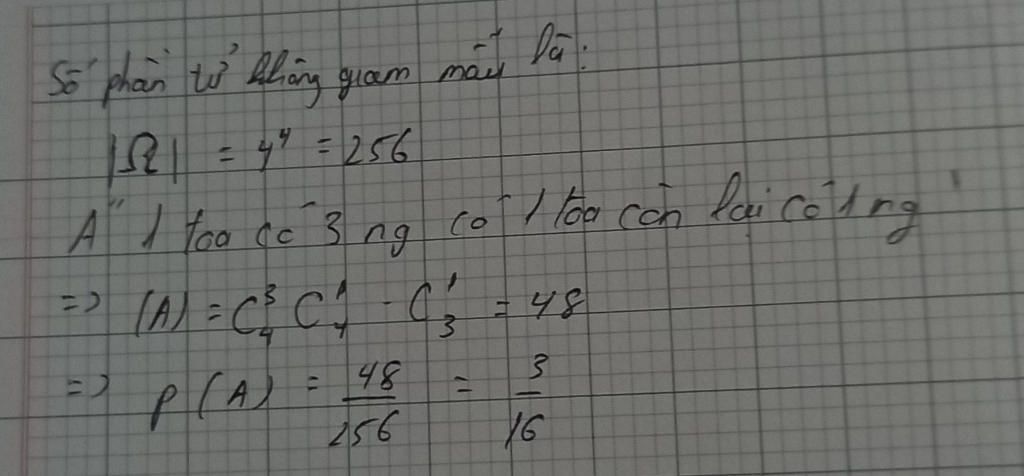 Số phần tử không gian mẫu là:
|Ω| = 4⁴ = 256
A " 1 toa có 3 ng có 1 toa còn lại có 1 ng "
=> (A) = C³₄ C¹₄ · C¹₃ = 48
=> P(A) = 48/256 = 3/16